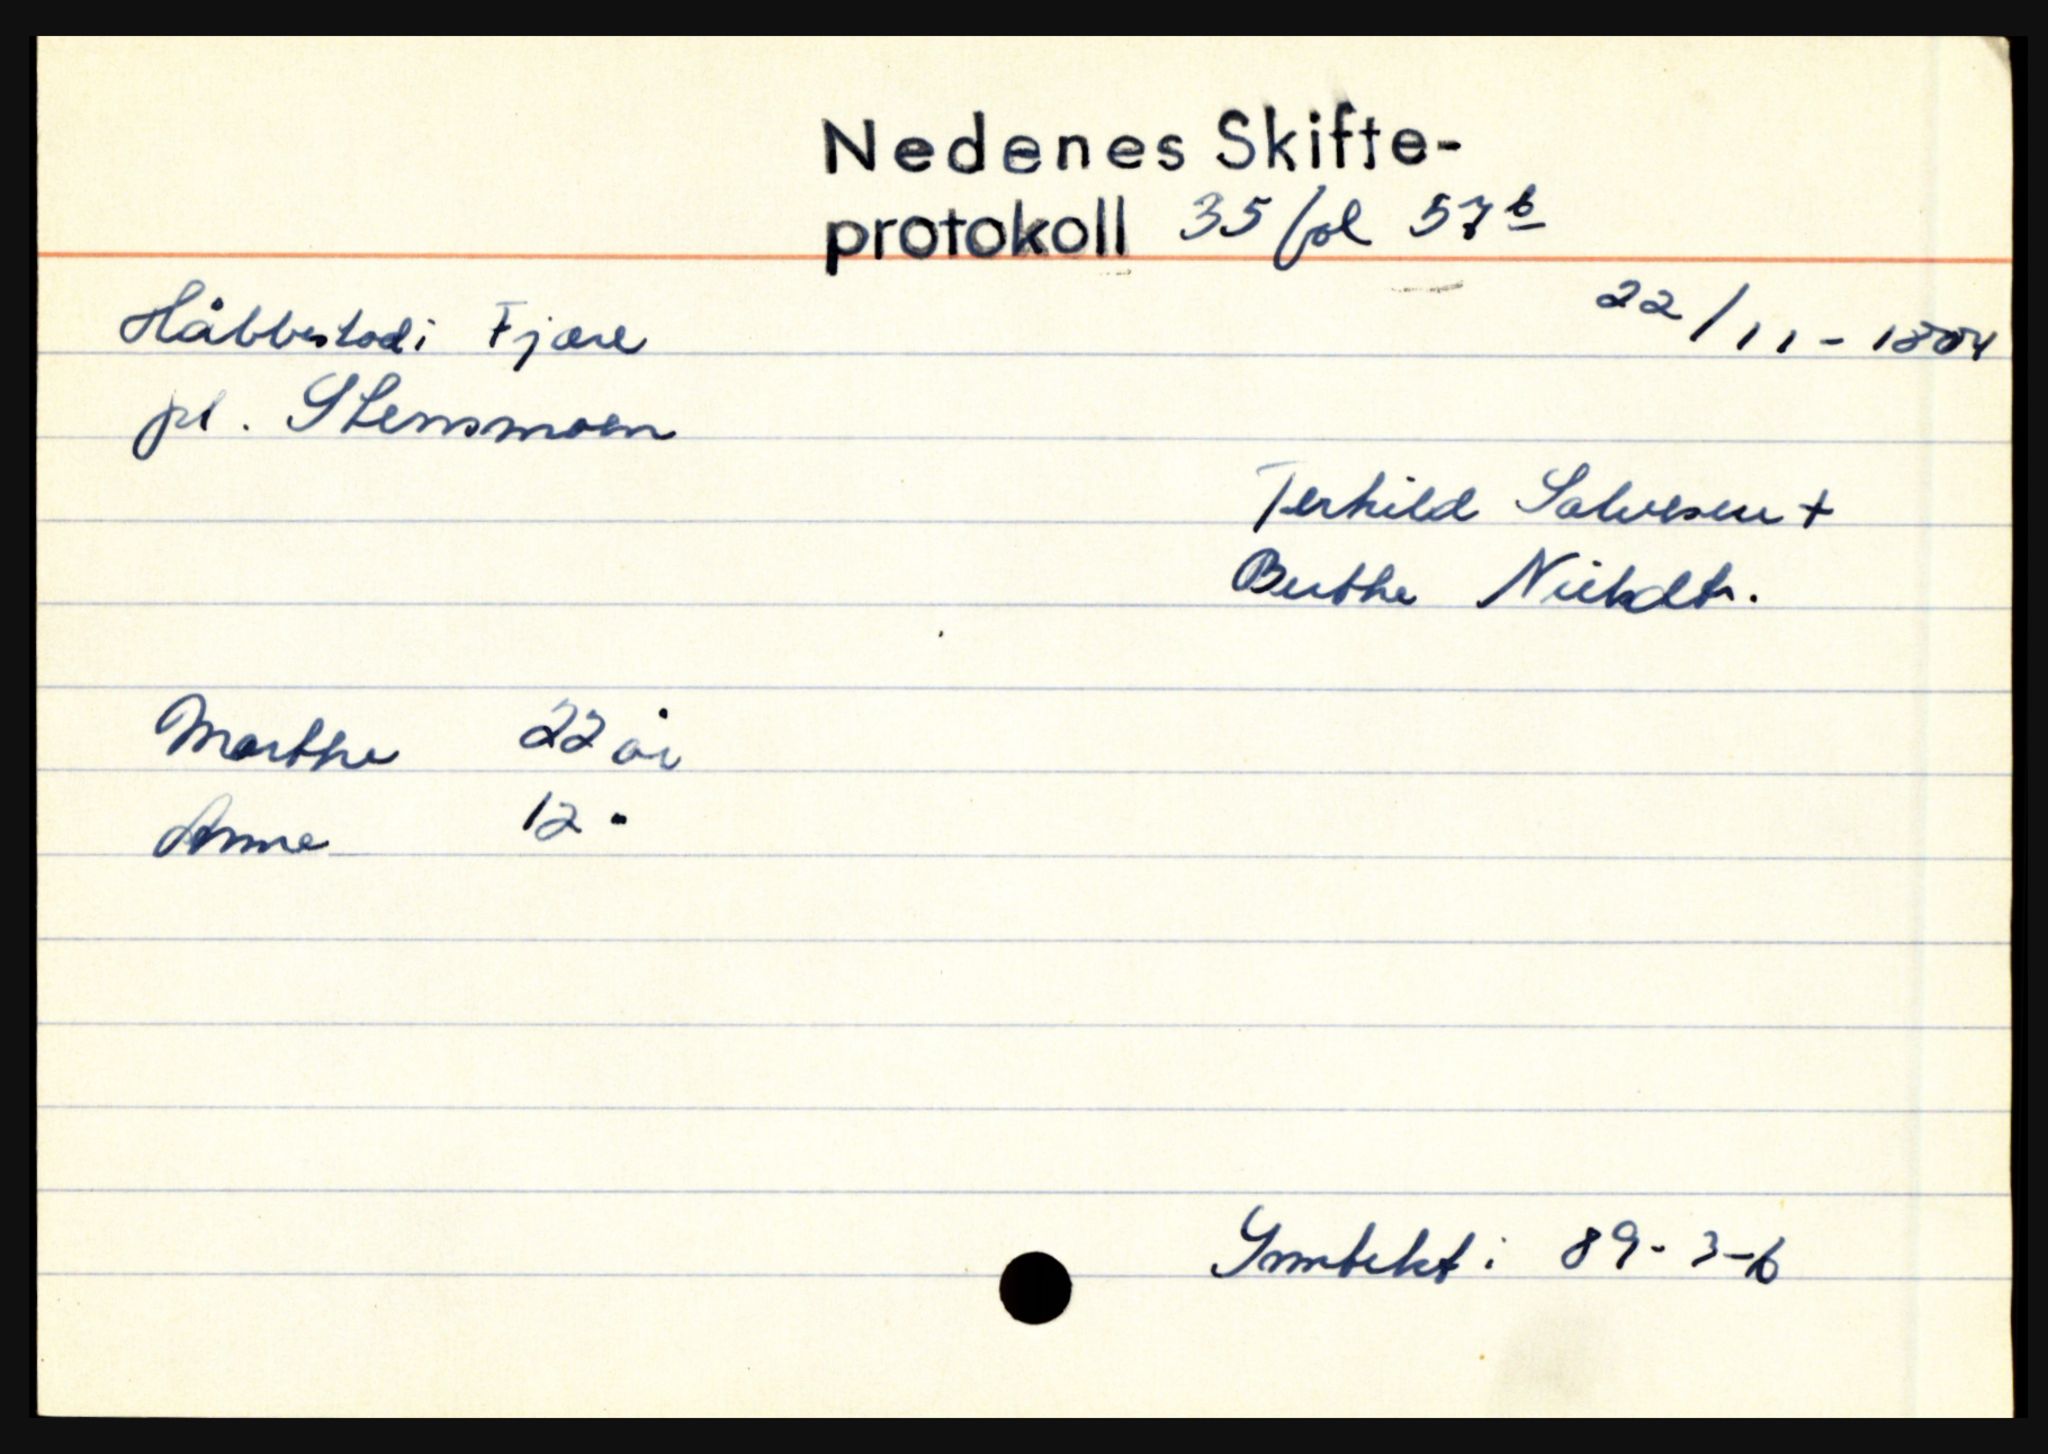 Nedenes Skifte-
protokoll 35 fol 57 b
Håbbestad i Fjære
22/11-1804
pl. Stensmoen
Terkild Salvesen +
Berthe Nielsdtr.
Marthe 22 år
Anne 12 "
Inntekt: 89-3-6